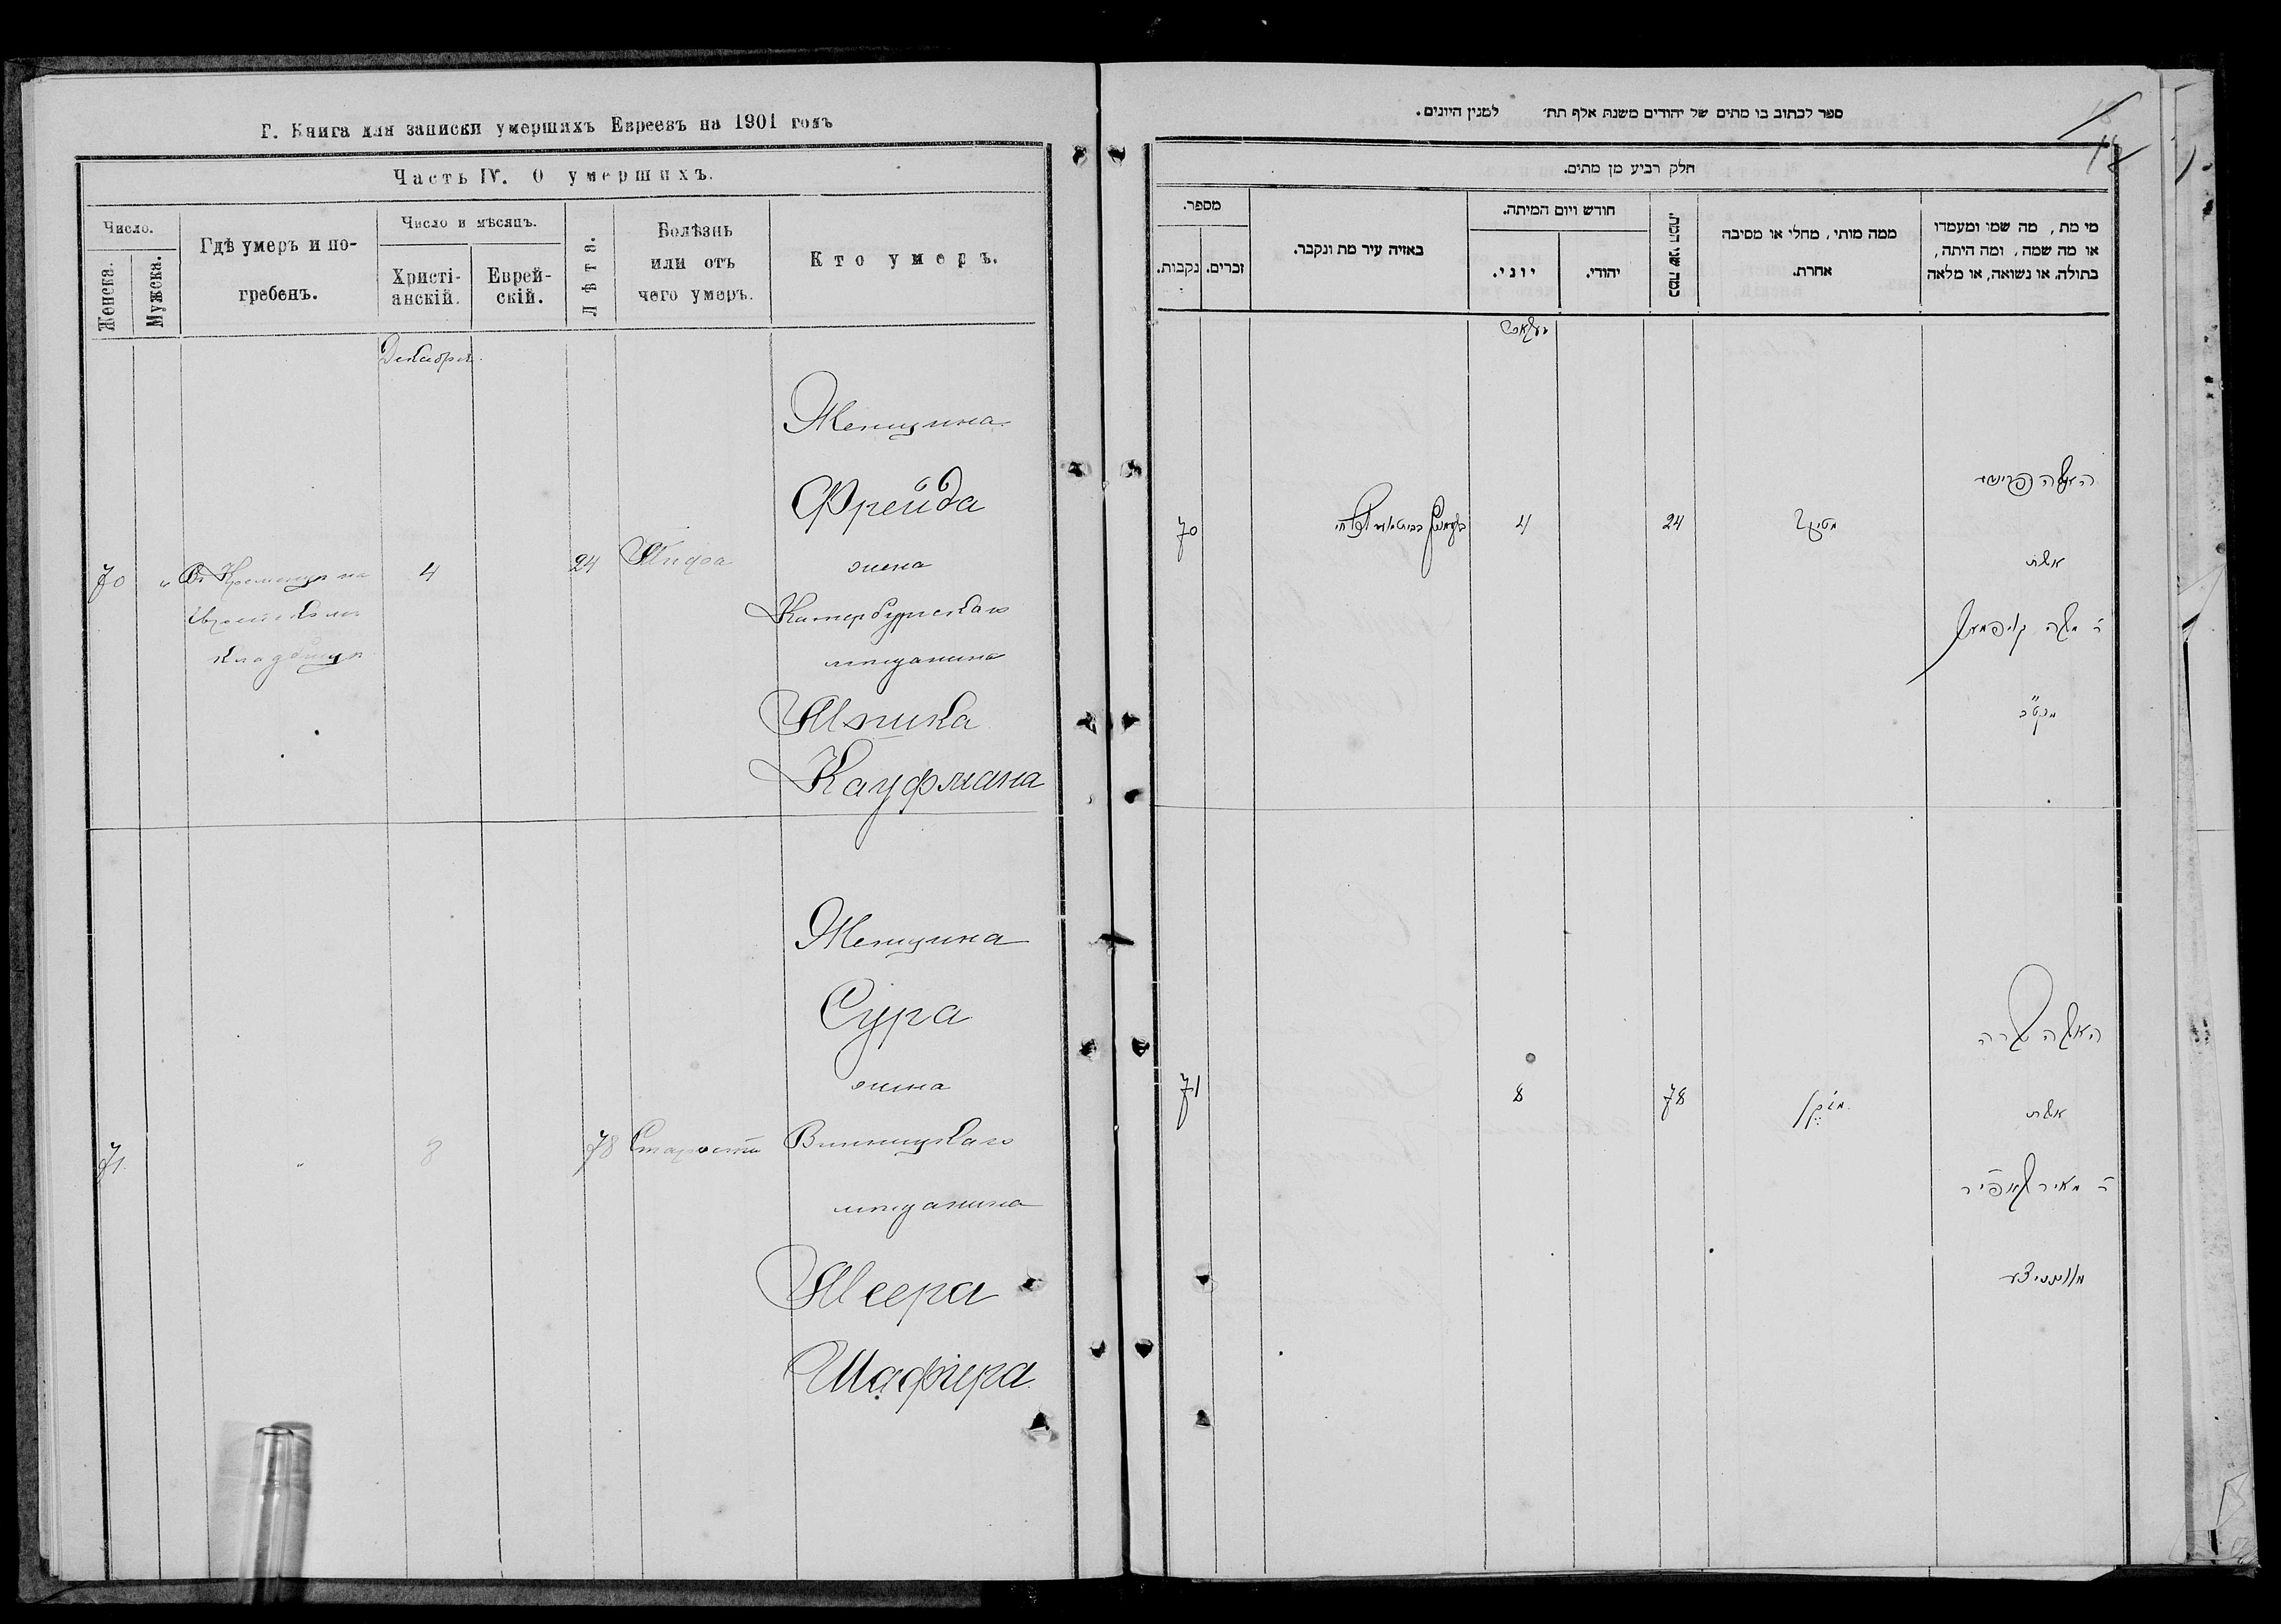 Г. Книга для записки умершихъ Евреевъ на 1901 годъ
Часть IV. О умершихъ.
Число.
Женска.
Мужска.
Гдѣ умеръ и по-
гребенъ.
Число и мѣсяцъ.
Христі-
анскій.
Еврей-
скій.
Лѣта.
Болѣзнь
или отъ
чего умеръ.
Кто умеръ.
Декабря.
70
Въ Кременцѣ на
еврейскомъ
кладбищѣ
4
24
Тифа
Женщина
Фрейда
жена
Катербургскаго
мѣщанина
Кауфмана
71
"
8
78
Старости
Женщина
Сура
жена
Винницкаго
мѣщанина
Меера
Шафира
ספר לכתוב בו מתים של יהודים משנת אלף תת׳ למנין היונים.
חלק רביע מן מתים.
מספר.
נקבות.
זכרים.
באזיה עיר מת ונקבר.
חודש ויום המיתה.
יוני.
יהודי.
כמה שני המת.
ממה מותי, מחלי או מסיבה
אחרת.
מי מת, מה שמו ומעמדו
או מה שמה, ומה היתה,
בתולה, או נשואה, או מלאה
70
4
24
האשה
אשת
71
8
78
מזקן
האשה שרה
אשת
ר׳ מאיר שאפיר